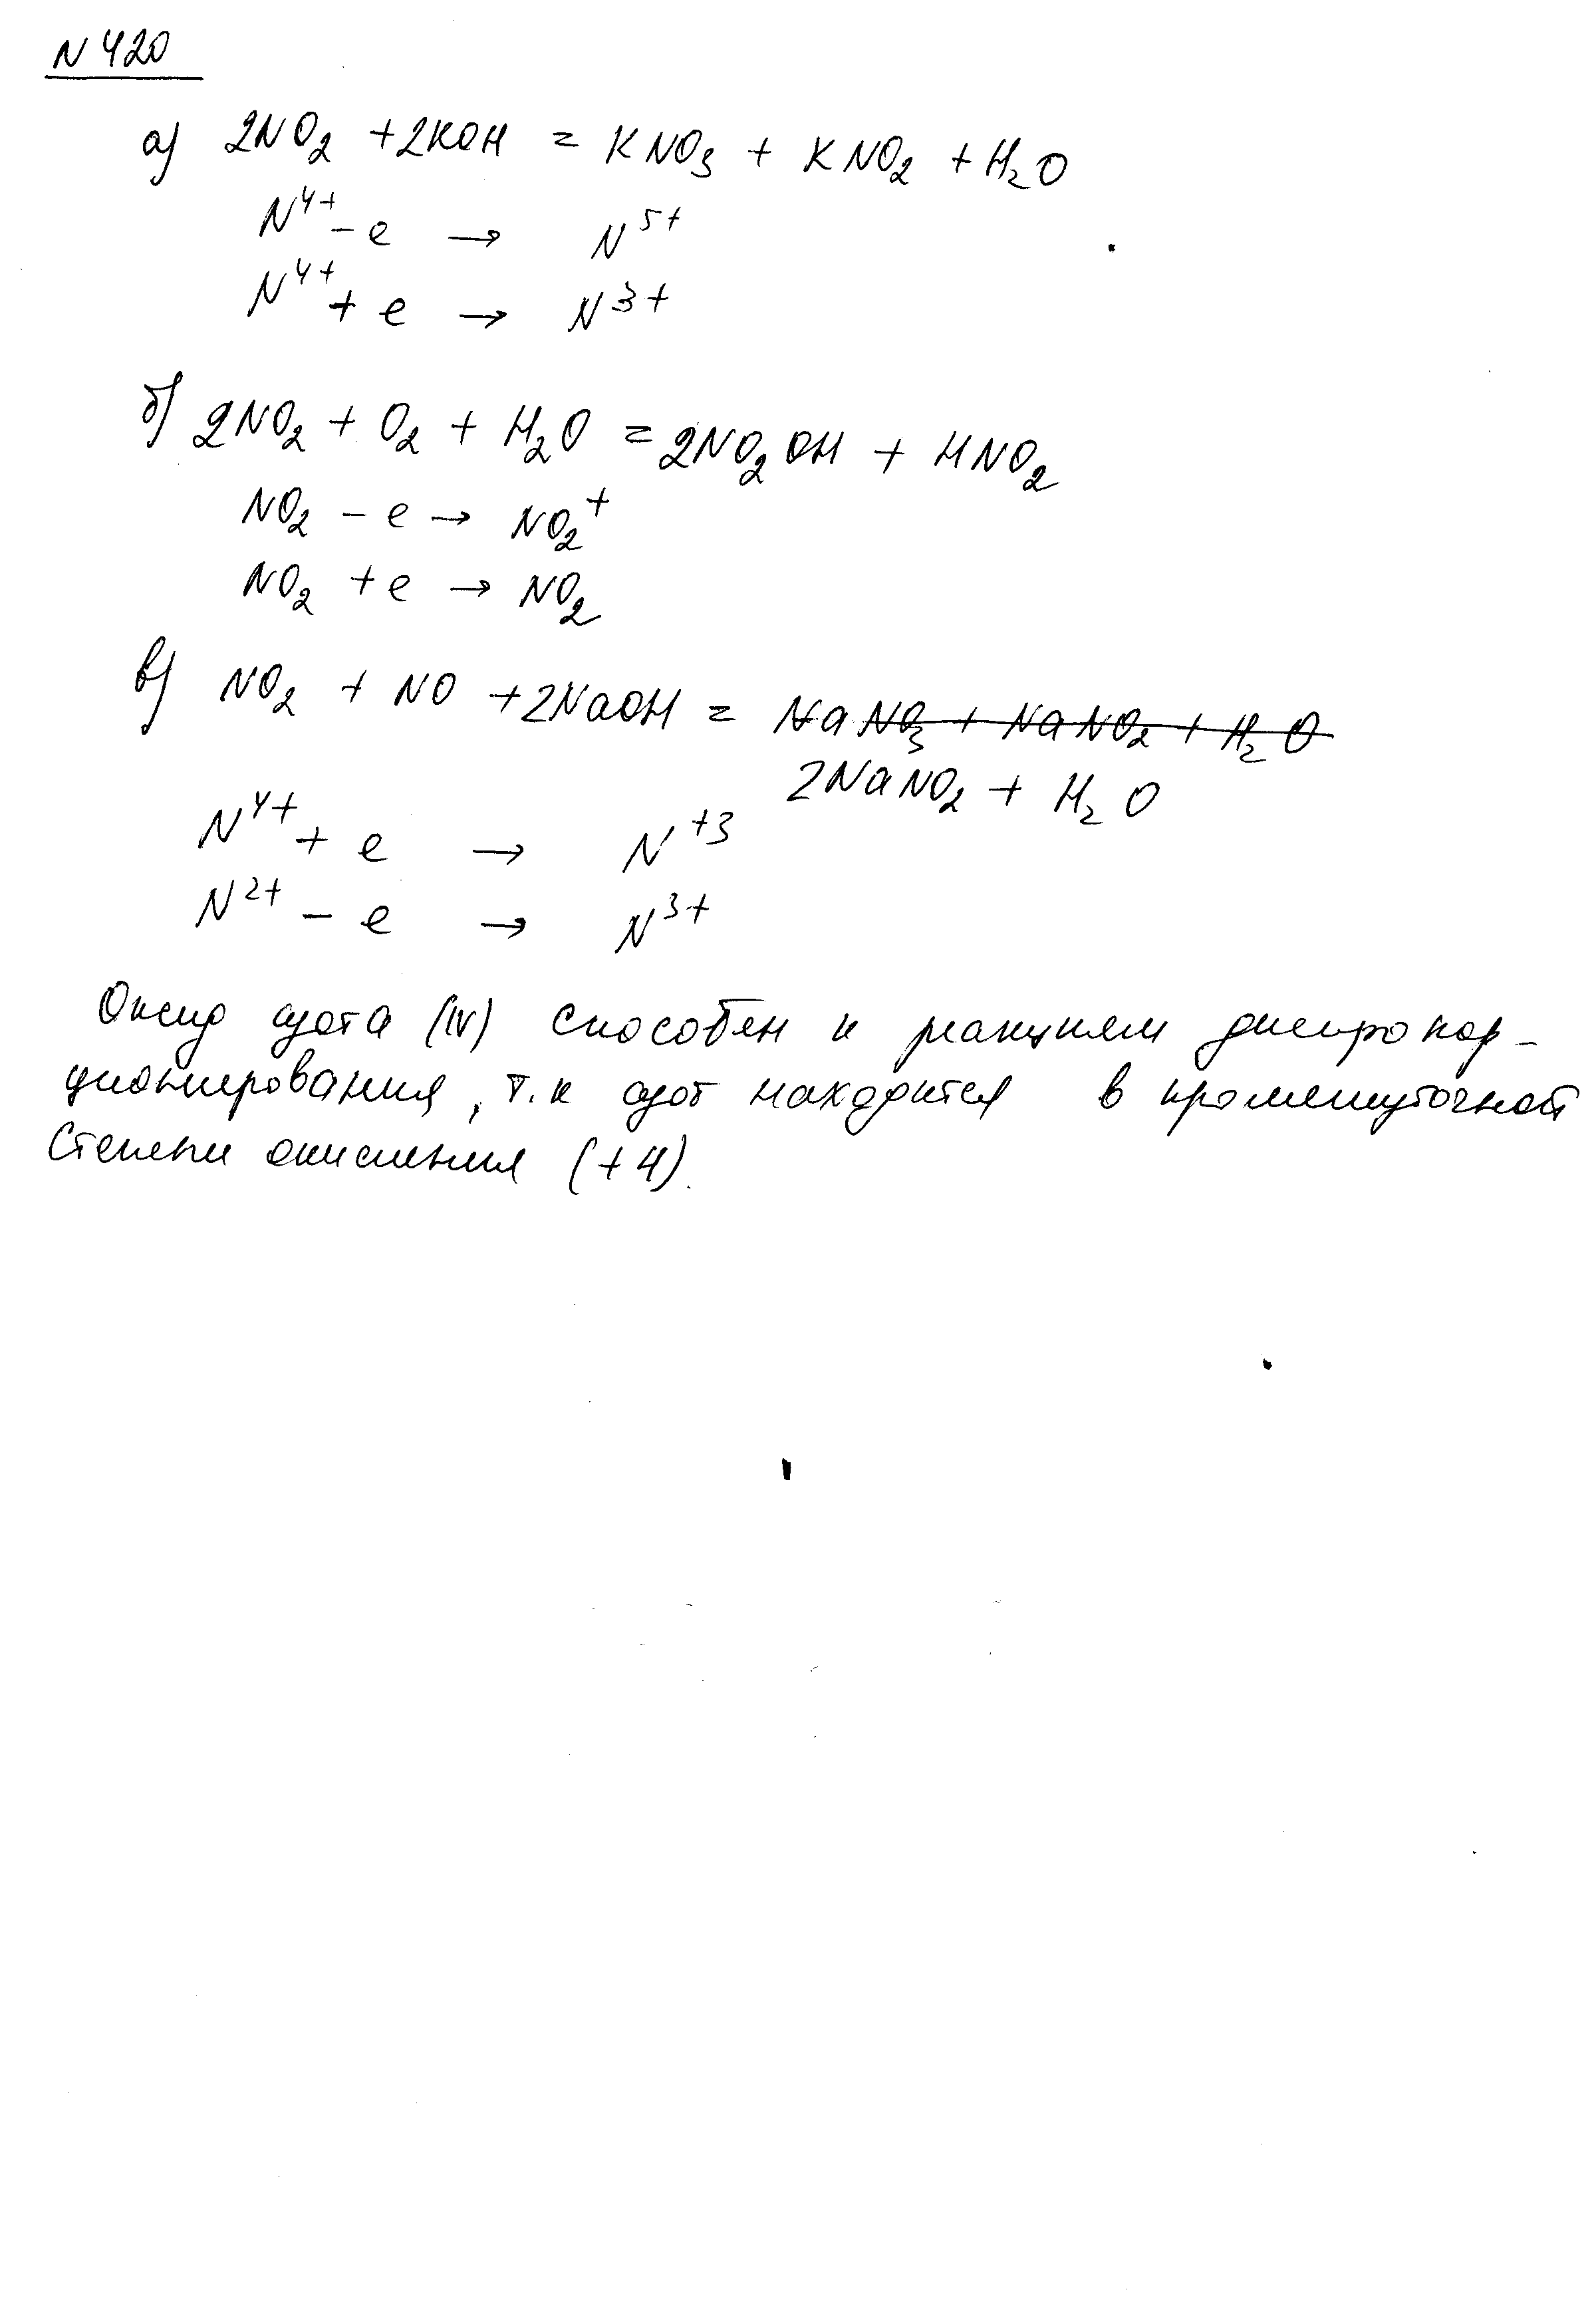 N 420
а) 2NO₂ + 2KOH = KNO₃ + KNO₂ + H₂O
N⁴⁺ - e → N⁵⁺
N⁴⁺ + e → N³⁺
б) 2NO₂ + O₂ + H₂O = 2NO₂OH + HNO₂
NO₂ - e → NO₂⁺
NO₂ + e → NO₂
в) NO₂ + NO + 2NaOH = NaNO₃ + NaNO₂ + H₂O
2NaNO₂ + H₂O
N⁴⁺ + e → N⁺³
N²⁺ - e → N³⁺
Оксид азота (IV) способен к реакциям диспропор-
ционирования, т.к азот находится в промежуточной
степени окисления (+4).